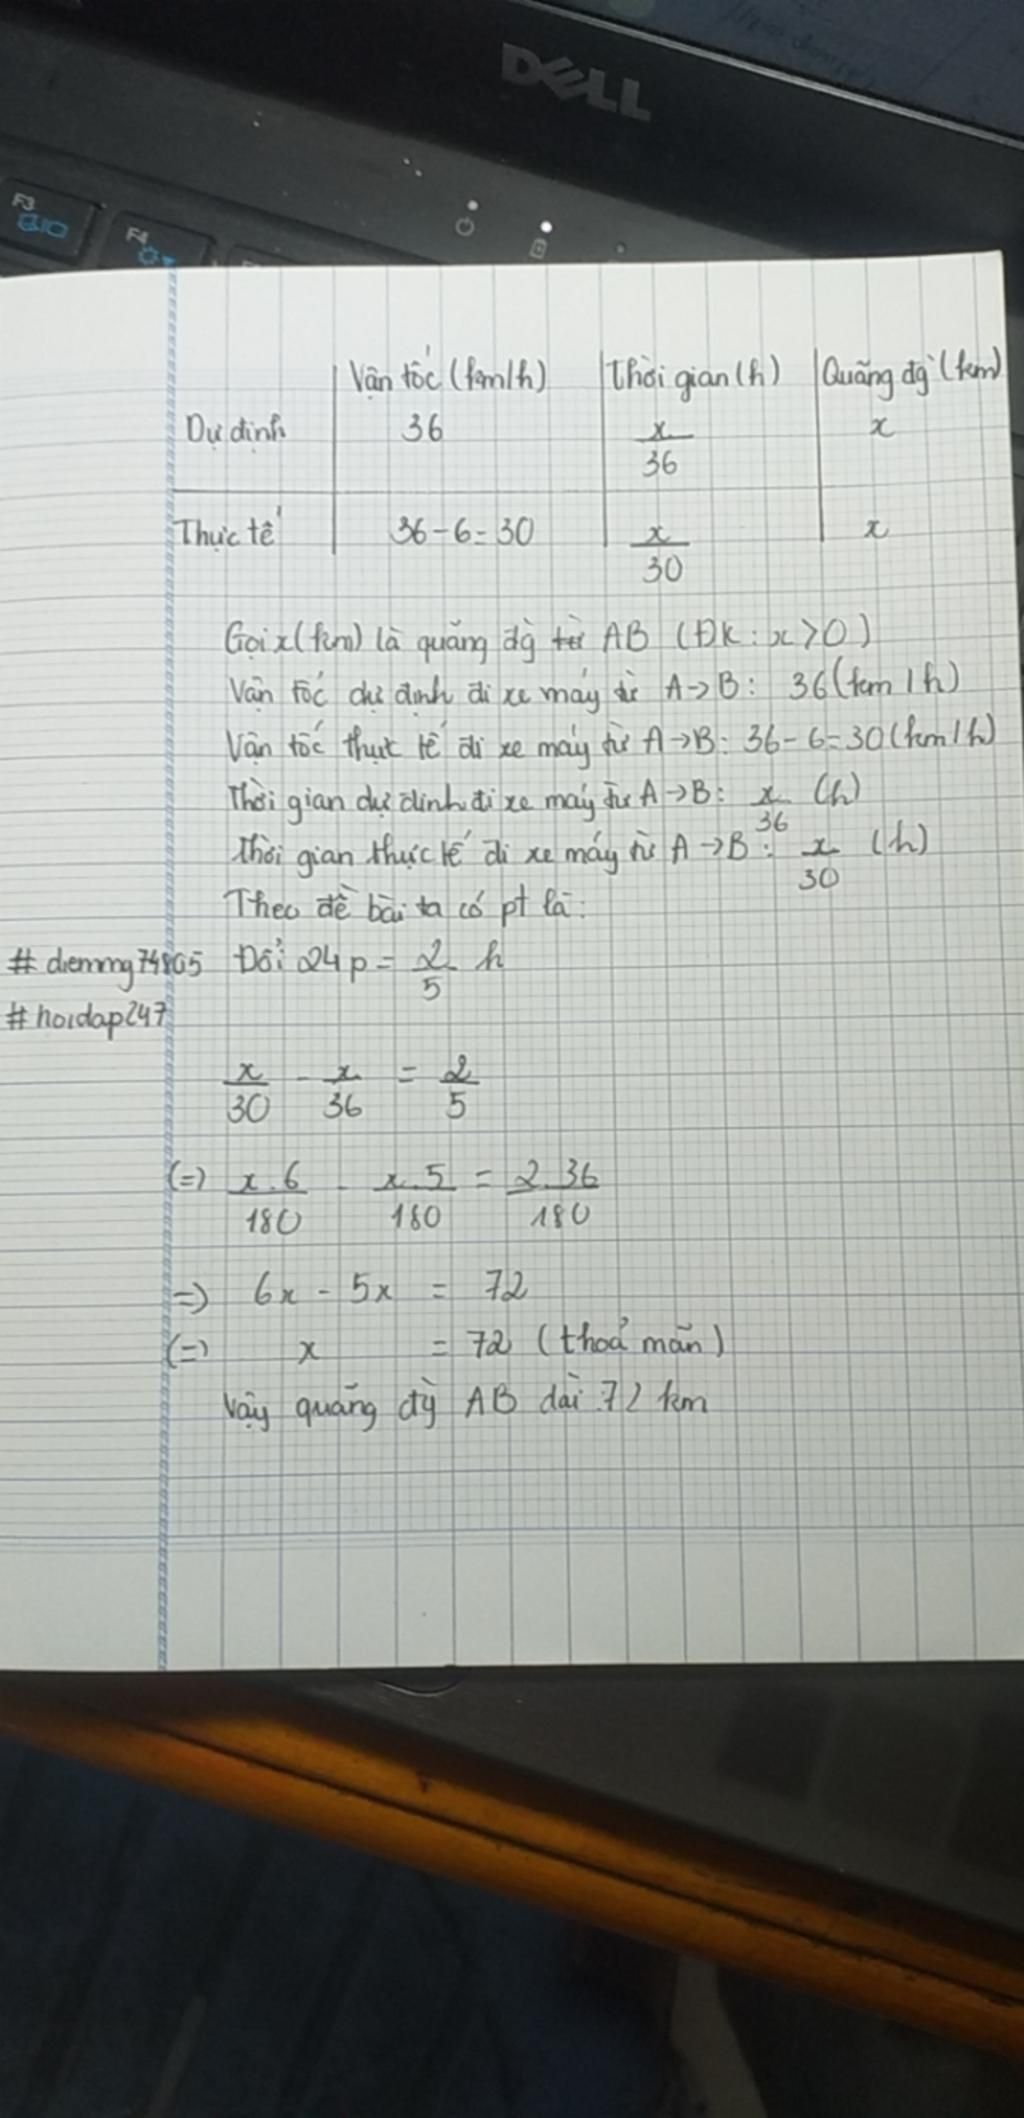 DELL
F3
F4
Vận tốc (km/h) Thời gian (h) Quãng đg` (km)
Dự định 36 x/36 x
Thực tế 36-6=30 x/30 x
Gọi x (km) là quãng đg` từ AB (ĐK: x>0)
Vận tốc dự định đi xe máy từ A→B: 36 (km/h)
Vận tốc thực tế đi xe máy từ A→B: 36-6=30 (km/h)
Thời gian dự định đi xe máy từ A→B: x/36 (h)
Thời gian thực tế đi xe máy từ A→B: x/30 (h)
Theo đề bài ta có pt là:
Đổi 24p = 2/5 h
#hoidap247
x/30 - x/36 = 2/5
(=) x.6/180 - x.5/180 = 2.36/180
=) 6x - 5x = 72
(=) x = 72 (thoả mãn)
Vậy quãng đg` AB dài 72 km